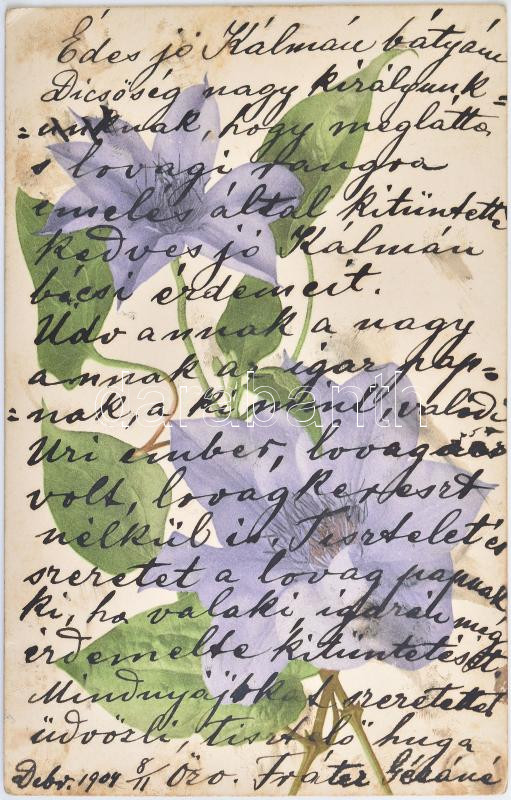 Édes jó Kálmán bátyám
Dicsőség nagy királyunk=
=unknak, hogy meglátta
s lovagi rangra
emelés által kitüntette
kedves jó Kálmán
bácsi érdemeit.
Üdv annak a nagy
annak az igaz pap=
=nak, a ki mint, valódi
Uri ember, lovagias
volt, lovagkereszt
nélkül is. Tisztelet és
szeretet a lovag papnak
ki, ha valaki, igazán meg
érdemelte kitüntetését.
Mindnyájukat szeretettel
üdvözli, tisztelő huga
Debr. 1904 8/11 Özv. Fráter Gézáné
darabanth